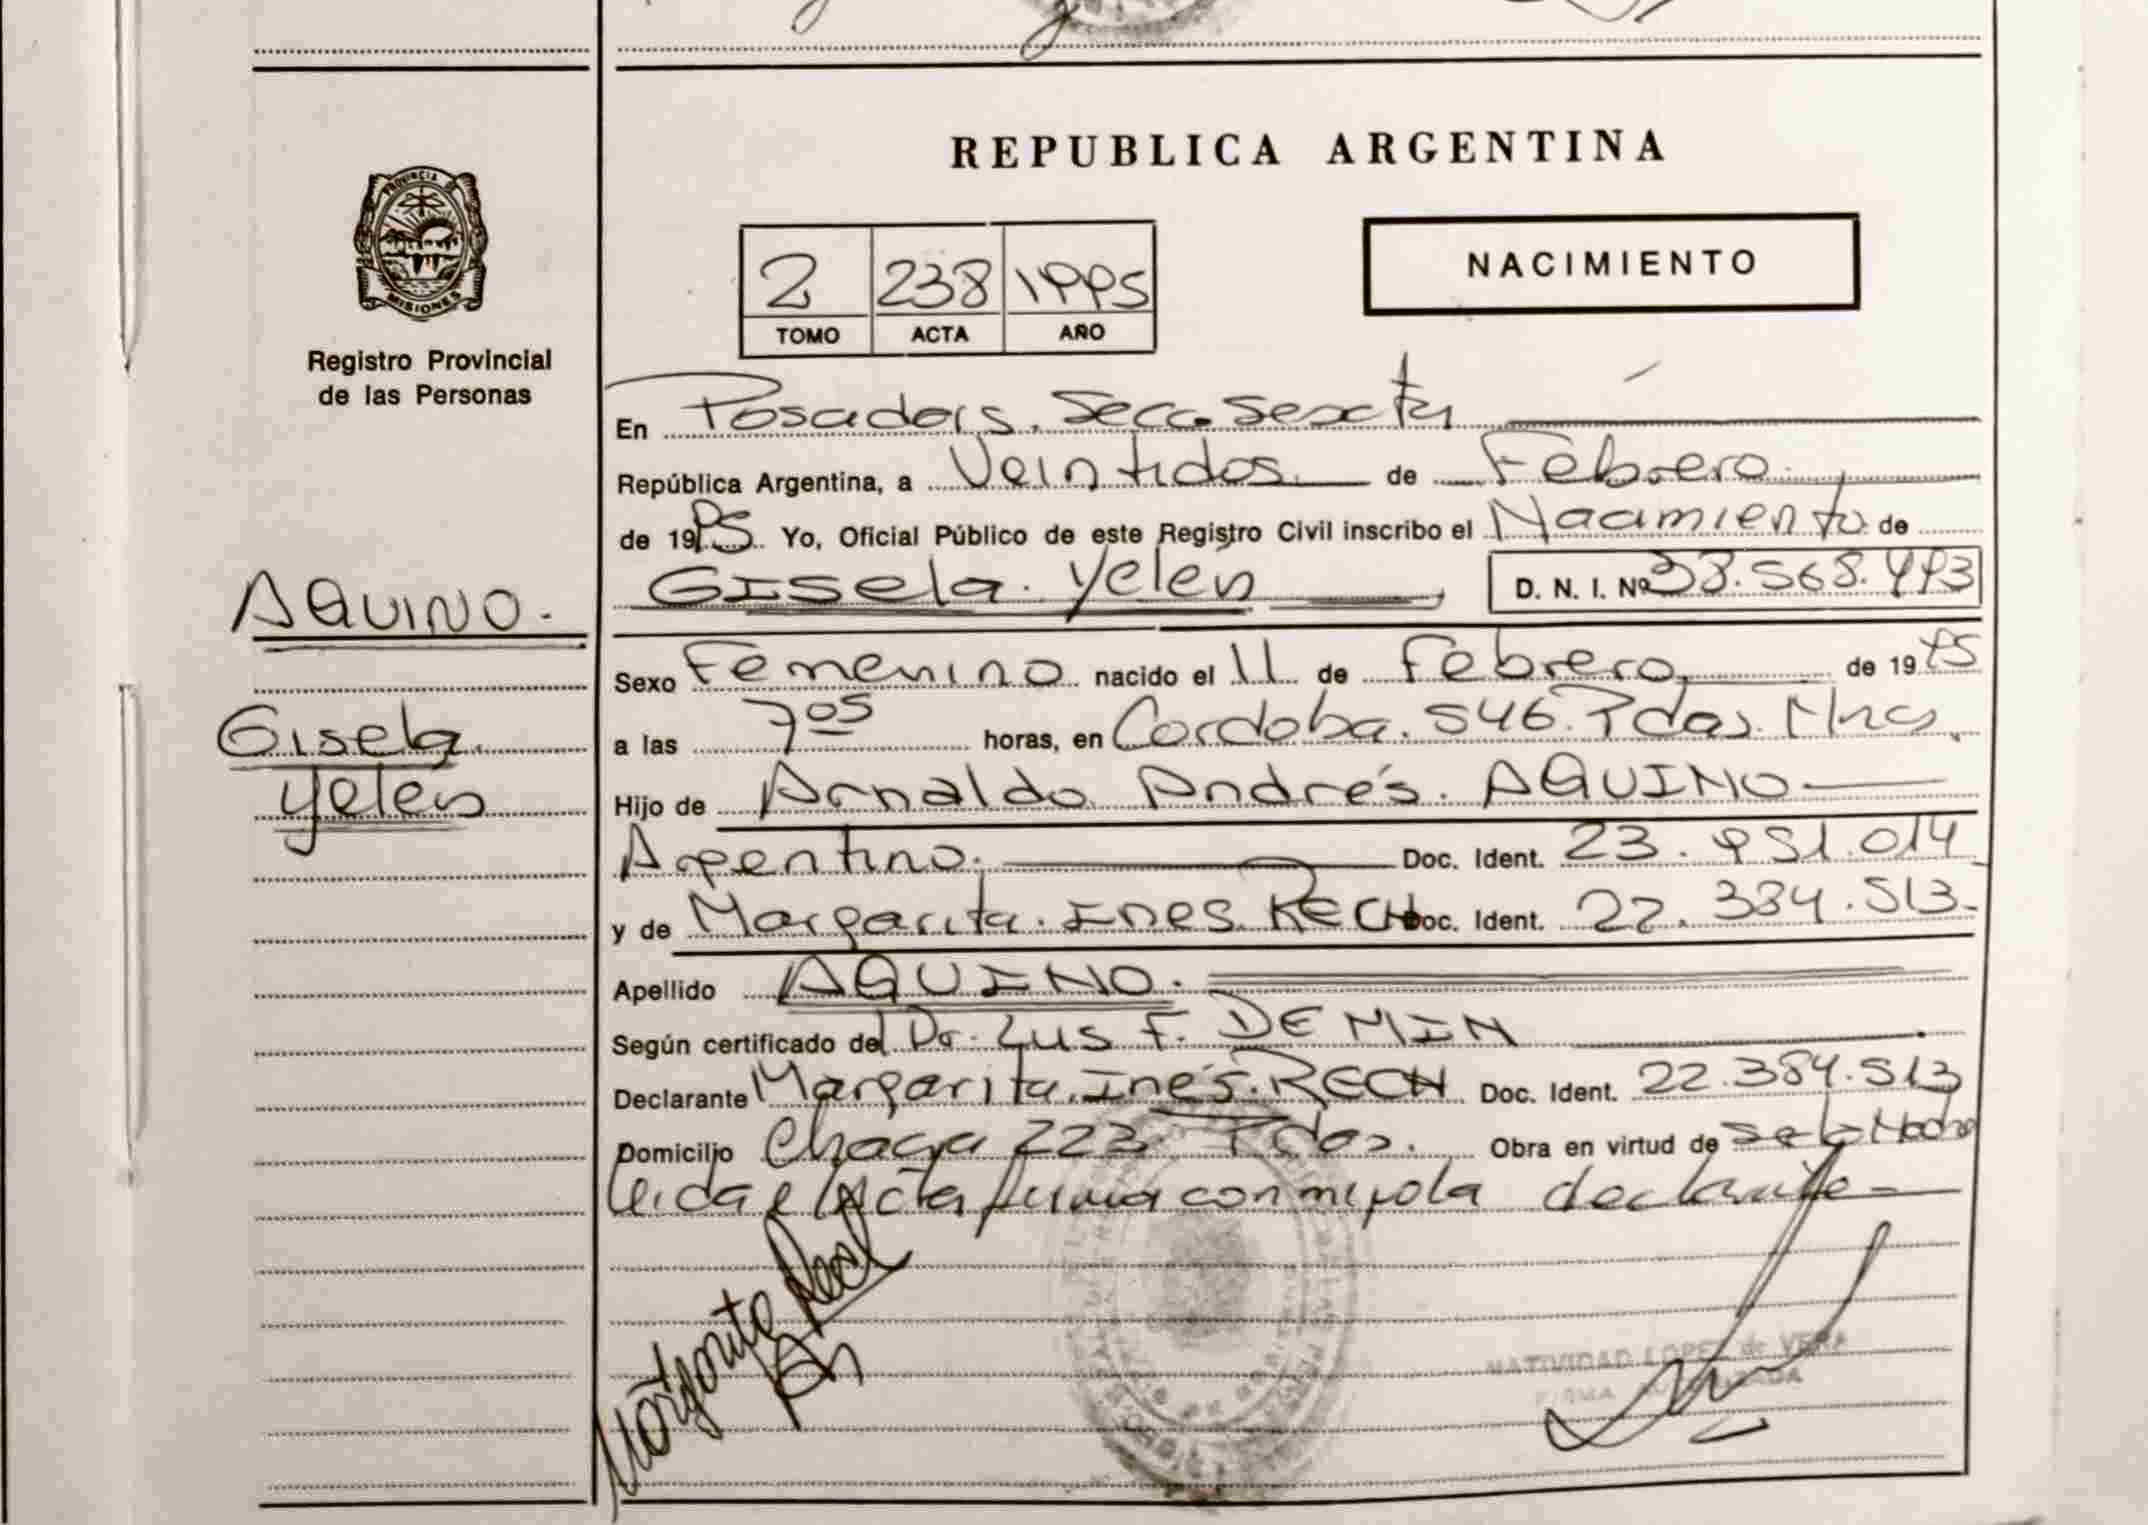 REPUBLICA ARGENTINA
PROVINCIA DE
MISIONES
Registro Provincial
de las Personas
2 238 1995
TOMO ACTA AÑO
NACIMIENTO
En Posadas. Secc. Sexta
República Argentina, a Veintidos de Febrero
de 1995 Yo, Oficial Público de este Registro Civil inscribo el Nacimiento de
Gisela Yelen D. N. I. Nº
AQUINO.
Gisela
Yelen
Sexo Femenino nacido el 11 de Febrero de 1995
a las 7 05 horas, en Cordoba. 546. Pdas. Mnes.
Hijo de Arnaldo Andrés. AQUINO
Argentino. Doc. Ident. 23.951.014
y de Margarita. Ines. RECH Doc. Ident. 22.384.513.
Apellido AQUINO.
Según certificado del Dr. Luis F. DEMIN
Declarante Margarita. Inés. RECH Doc. Ident. 22.384.513
Domicilio 223 Pdas. Obra en virtud de
leida el Acta firma conmigo la declarante
Margarita Rech
NATIVIDAD LOPEZ de VERA
FIRMA AUTORIZADA